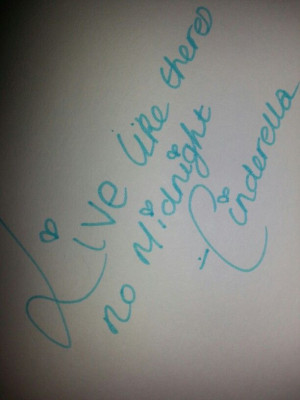 Live like theres
no midnight
- Cinderella